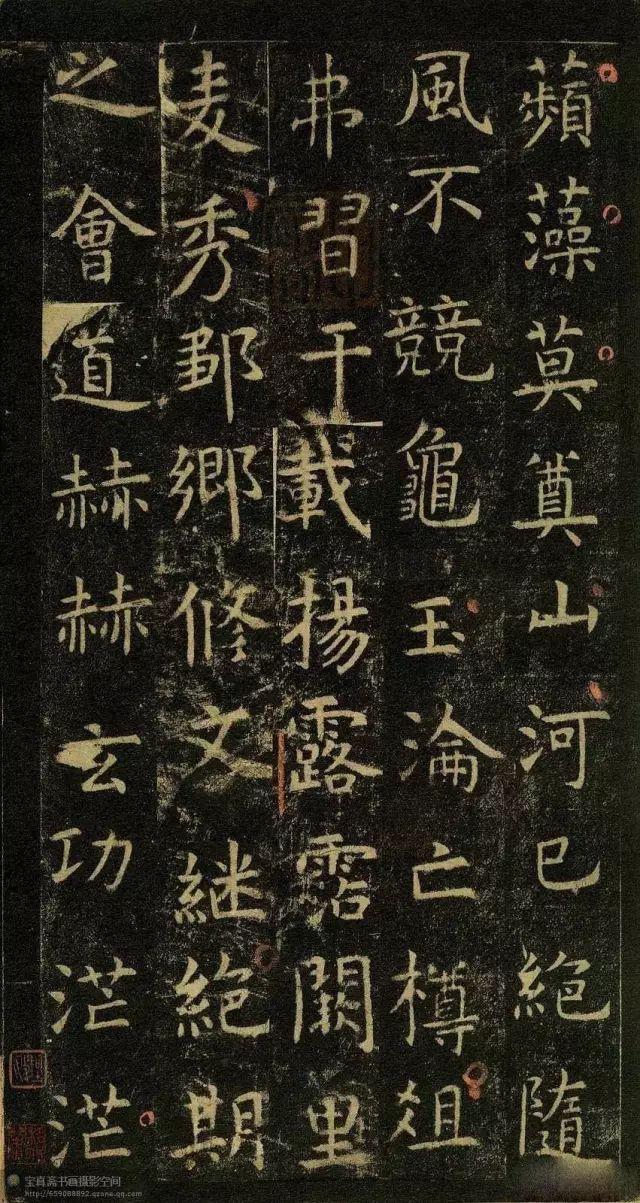 蘋藻莫奠山河已絶隨
風不競龜玉淪亡樽俎
弗習干載揚露霑闕里
麦秀鄒鄉修文継絶期
之會道赫赫玄功茫茫
宝真斋书画摄影空间
http://659088892.qzone.qq.com